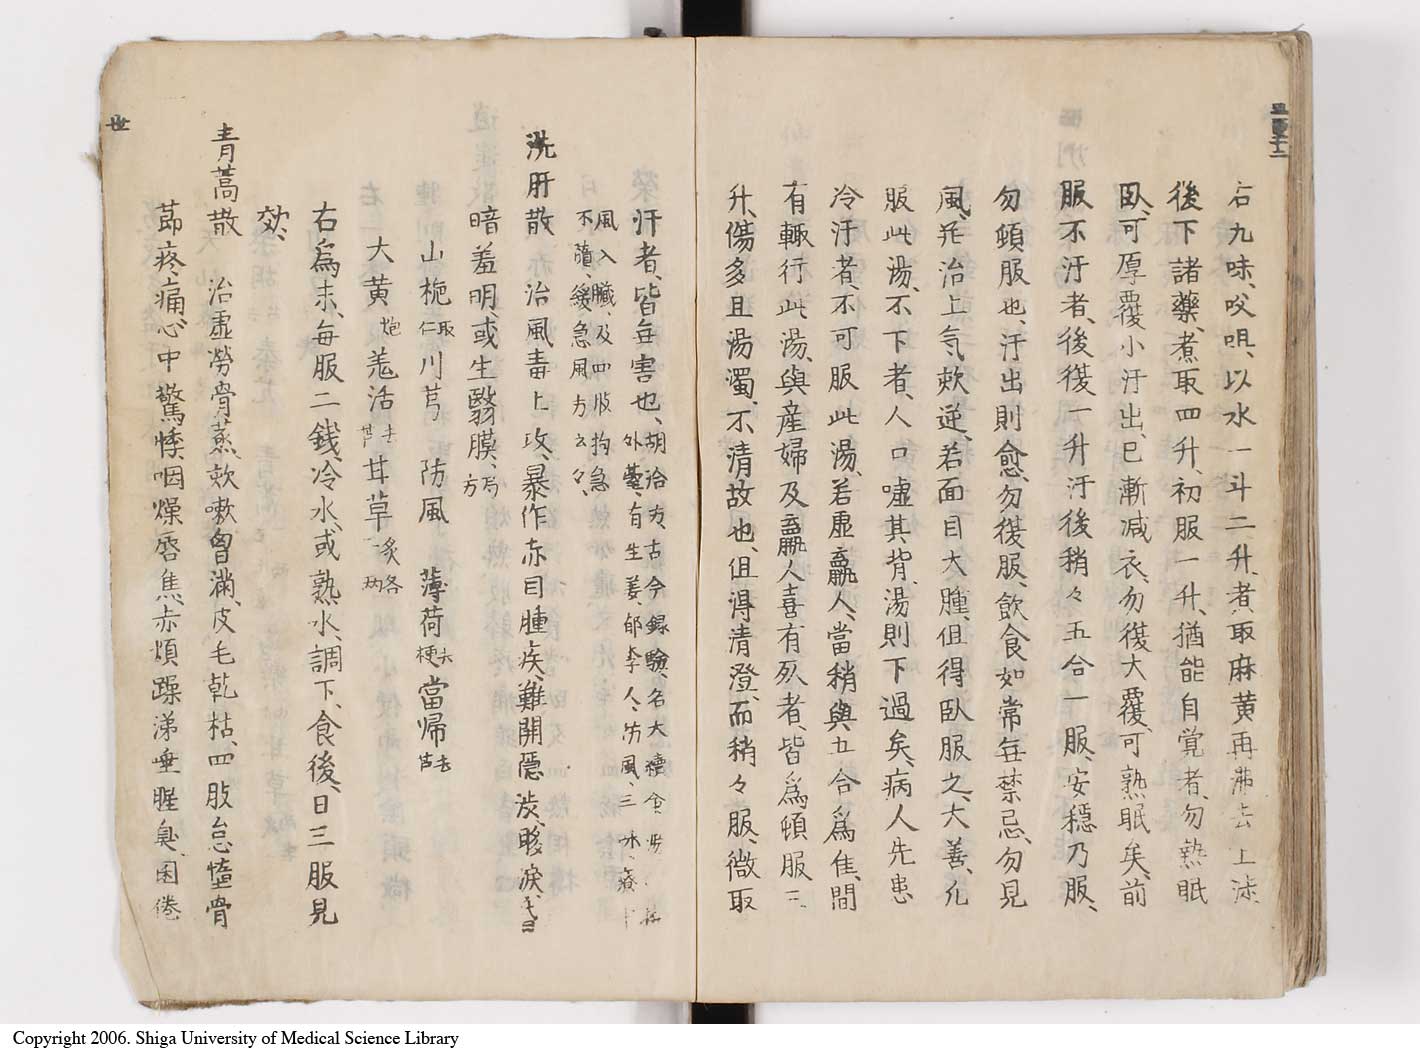 右九味、㕮咀、以水一斗二升、煮取麻黄再沸去上沫
後下諸藥、煮取四升、初服一升、猶能自覚者、勿熟眠
臥、可厚覆小汗出、已漸減衣、勿復大覆、可熟眠矣、前
服不汗者、後復一升汗後稍々五合一服、安穏乃服、
勿頓服也、汗出則愈、勿復服、飲食如常無禁忌、勿見
風、并治上气欬逆、若面目大腫、但得臥服之、大善、凡
服此湯、不下者、人口嘘其背、湯則下過矣、病人先患
冷汗者、不可服此湯、若虚羸人、當稍與五合爲佳、間
有輙行此湯、與産婦及羸人喜有死者、皆爲頓服三
升、傷多且湯濁、不清故也、但得清澄、而稍々服、微取
汗者、皆無害也、胡洽方、古今録驗、名大續命湯
風入臓、及四肢拘急 外臺、有生姜、郁李人、防風、三味、療
不隨、緩急風方云々、
洗肝散 治風毒上攻、暴作赤目腫疾、難開隱渋、眵淚
暗羞明、或生翳膜、局方
山梔仁 川芎 防風 薄荷去梗 當帰去芦
大黄煨 羌活去芦 甘草炙各二両
右爲末、毎服二銭、冷水、或熟水、調下、食後、日三服見
效、
青蒿散 治虚勞骨蒸、欬嗽胷滿、皮毛乾枯、四肢怠惰骨
莭疼痛、心中驚悸、咽燥唇焦、赤煩躁涕唾腥臭、困倦
Copyright 2006. Shiga University of Medical Science Library